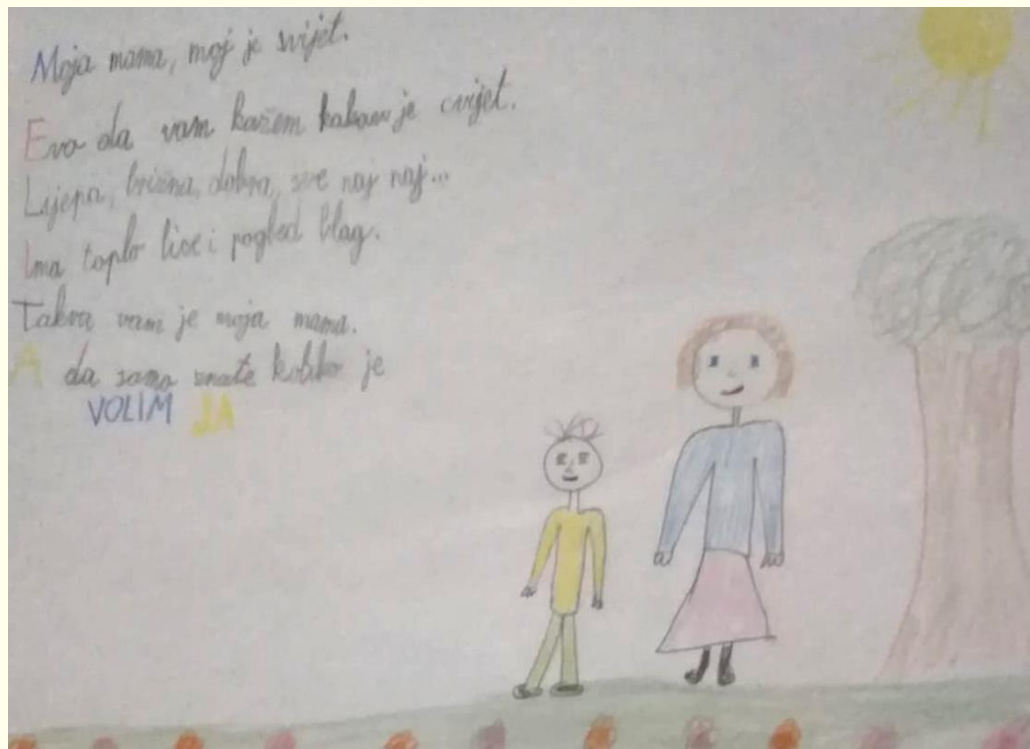 Moja mama, moj je svijet.
Evo da vam kažem kakav je cvijet.
Lijepa, brižna, dobra, sve naj naj...
Ima toplo lice i pogled blag.
Takva vam je moja mama.
A da samo znate koliko je
VOLIM JA